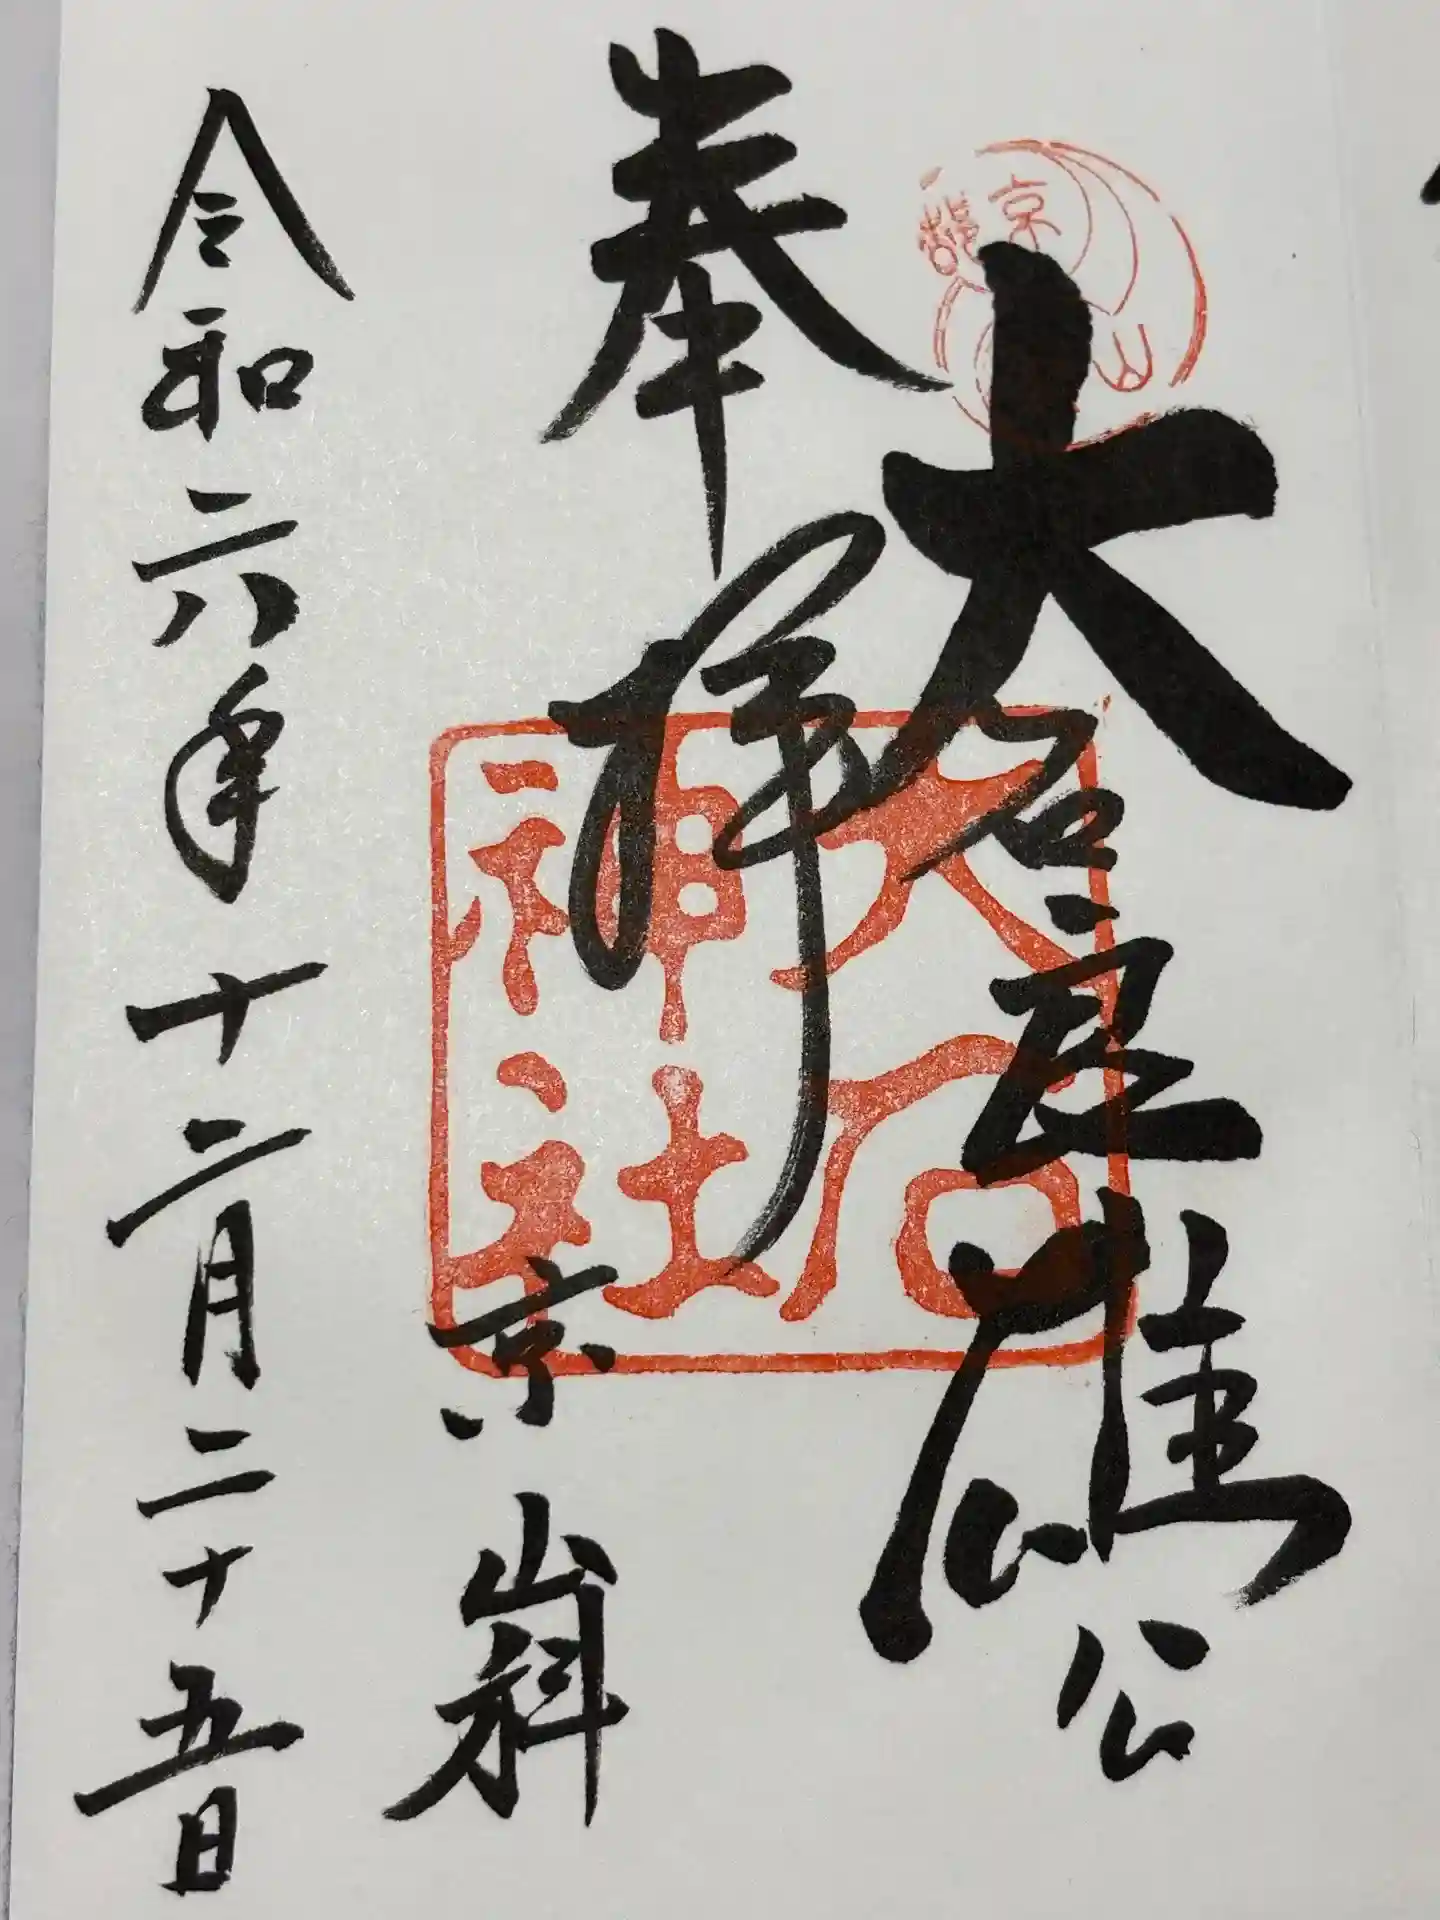 大石良雄公
奉拝
京山科
令和六年十二月二十五日
大石神社
京
山